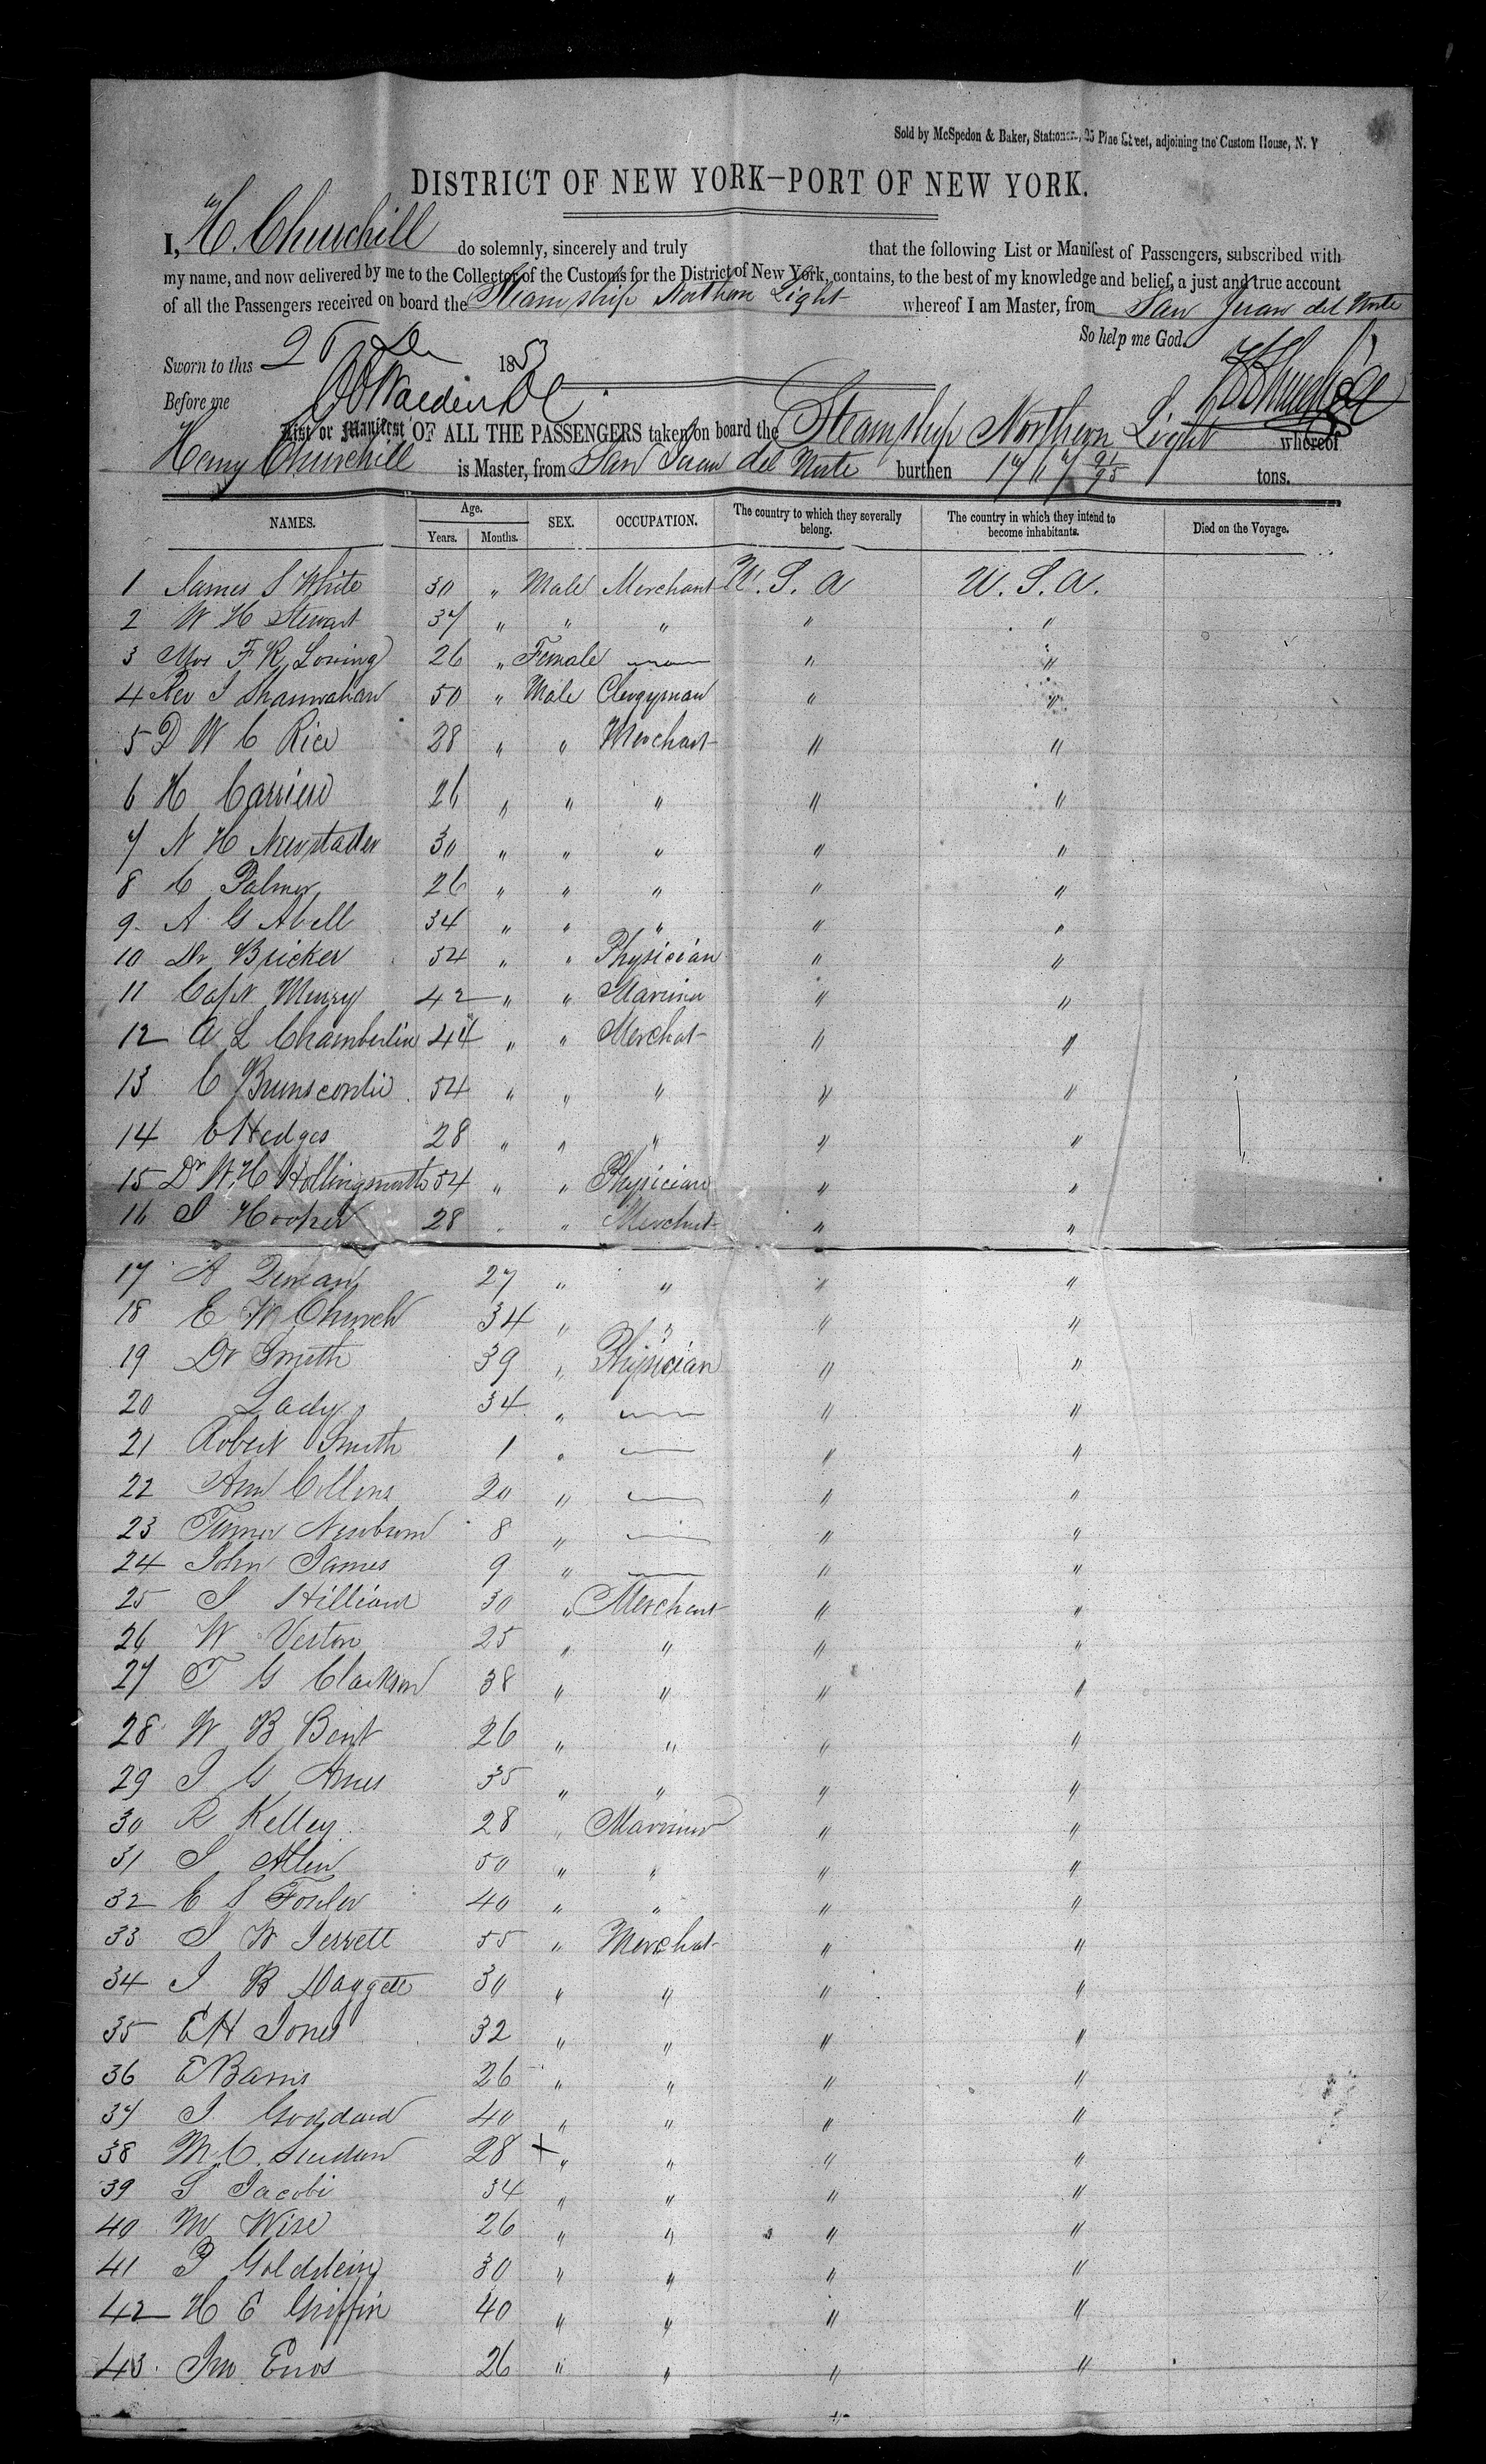 Sold by McSpedon & Baker, Stationers, 25 Pine Street, adjoining the Custom House, N. Y
DISTRICT OF NEW YORK—PORT OF NEW YORK.
I, H. Churchill do solemnly, sincerely and truly that the following List or Manifest of Passengers, subscribed with
my name, and now delivered by me to the Collector of the Customs for the District of New York, contains, to the best of my knowledge and belief, a just and true account
of all the Passengers received on board the Steamship Northern Light whereof I am Master, from San Juan del Norte
So help me God.
Sworn to this 26 De 1853
Before me
List or Manifest OF ALL THE PASSENGERS taken on board the Steamship Northern Light whereof
Henry Churchill is Master, from San Juan del Norte burthen 1767 91/95 tons.
NAMES. Age. Years. Months. SEX. OCCUPATION. The country to which they severally belong. The country in which they intend to become inhabitants. Died on the Voyage.
1 James S White 30 " Male Merchant U. S. a U. S. a.
2 W H Stewart 37 " " " " "
3 Mrs F R Loring 26 " Female — " "
4 Rev I Shannahan 50 " Male Clergyman " "
5 D W C Rice 28 " " Merchant " "
6 H Carriere 26 " " " " "
7 N H Newstader 30 " " " " "
8 C Palmer 26 " " " " "
9 A G Abell 34 " " " " "
10 Dr Bricker 54 " " Physician " "
11 Capt 42 " " Mariner " "
12 A L Chamberlin 44 " " Merchat " "
13 C 54 " " " " "
14 C Hedges 28 " " " " "
15 Dr W. H Hollingsworth 54 " " Physician " "
16 S Hooper 28 " " Merchat " "
17 A 27 " " " "
18 E W Church 34 " " " "
19 Dr Smith 39 " Physician " "
20 Lady 34 " — " "
21 Robert Smith 1 " — " "
22 Ann Collins 20 " — " "
23 Turner Newbum 8 " — " "
24 John James 9 " — " "
25 S Hilliard 30 " Merchant " "
26 W Verton 25 " " " "
27 T G Clarkson 38 " " " "
28 W B Bent 26 " " " "
29 I G Ames 35 " " " "
30 R Kelley 28 " Marriner " "
31 S Allen 50 " " " "
32 C S Fowler 40 " " " "
33 S W Jerrett 55 " Merchat " "
34 I B Daggett 30 " " " "
35 E H Jones 32 " " " "
36 E Barns 26 " " " "
37 I Goddard 40 " " " "
38 M. C. 28 + " " " "
39 S Jacobi 34 " " " "
40 M Wise 26 " " " "
41 P Goldstein 30 " " " "
42 H E Griffin 40 " " " "
43 Jno Enos 26 " " " "